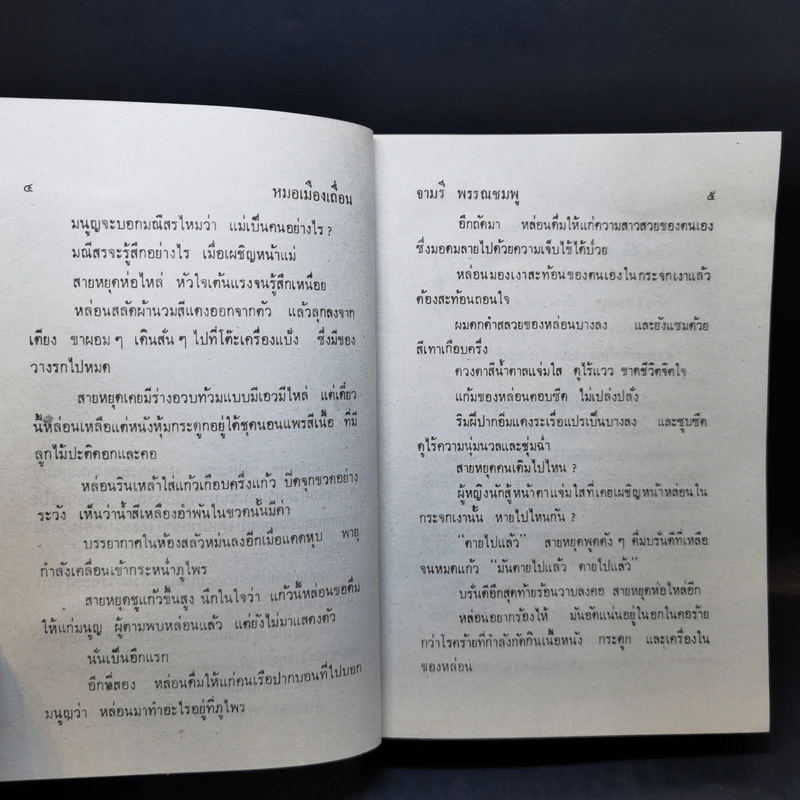 ๔
หมอเมืองเถื่อน
มนูญจะบอกมณีสรไหมว่า แม่เป็นคนอย่างไร?
มณีสรจะรู้สึกอย่างไร เมื่อเผชิญหน้าแม่
สายหยุดห่อไหล่ หัวใจเต้นแรงจนรู้สึกเหนื่อย
หล่อนสลัดผ้านวมสีแดงออกจากตัว แล้วลุกลงจาก
เตียง ขาผอมๆ เดินสั่นๆ ไปที่โต๊ะเครื่องแป้ง ซึ่งมีของ
วางรกไปหมด
สายหยุดเคยมีร่างอวบท้วมแบบมีเอวมีไหล่ แต่เดี๋ยว
นี้หล่อนเหลือแต่หนังหุ้มกระดูกอยู่ใต้ชุดนอนแพรสีเนื้อ ที่มี
ลูกไม้ปะติดอกและคอ
หล่อนรินเหล้าใส่แก้วเกือบครึ่งแก้ว ปิดจุกขวดอย่าง
ระวัง เห็นว่าน้ำสีเหลืองอำพันในขวดนั้นมีค่า
บรรยากาศในห้องสลัวหม่นลงอีกเมื่อแดดหุบ พายุ
กำลังเคลื่อนเข้ากระหน่ำภูไพร
สายหยุดชูแก้วขึ้นสูง นึกในใจว่า แก้วนี้หล่อนขอดื่ม
ให้แก่มนูญ ผู้ตามพบหล่อนแล้ว แต่ยังไม่มาแสดงตัว
นั่นเป็นอีกแรก
อีกที่สอง หล่อนดื่มให้แก่คนเรือปากบอนที่ไปบอก
มนูญว่า หล่อนมาทำอะไรอยู่ที่ภูไพร
จามรี พรรณชมพู
๕
อีกถัดมา หล่อนดื่มให้แก่ความสาวสวยของตนเอง
ซึ่งมอดมลายไปด้วยความเจ็บไข้ได้ป่วย
หล่อนมองเงาสะท้อนของตนเองในกระจกเงาแล้ว
ต้องสะท้อนถอนใจ
ผมดกดำสลวยของหล่อนบางลง และยังแซมด้วย
สีเทาเกือบครึ่ง
ดวงตาสีน้ำตาลแจ่มใส ดูไร้แวว ขาดชีวิตจิตใจ
แก้มของหล่อนตอบซีด ไม่เปล่งปลั่ง
ริมฝีปากอิ่มแดงระเรื่อแปรเป็นบางลง และซูบซีด
ดูไร้ความนุ่มนวลและชุ่มฉ่ำ
สายหยุดคนเดิมไปไหน?
ผู้หญิงนักสู้หน้าตาแจ่มใสที่เคยเผชิญหน้าหล่อนใน
กระจกเงานั้น หายไปไหนกัน?
"ตายไปแล้ว" สายหยุดพูดดังๆ ดื่มบรั่นดีที่เหลือ
จนหมดแก้ว "มันตายไปแล้ว ตายไปแล้ว"
บรั่นดีอีกสุดท้ายร้อนวาบลงคอ สายหยุดห่อไหล่อีก
หล่อนอยากร้องไห้ มันอัดแน่นอยู่ในอกในคอร้าย
กว่าโรคร้ายที่กำลังกัดกินเนื้อหนัง กระดูก และเครื่องใน
ของหล่อน